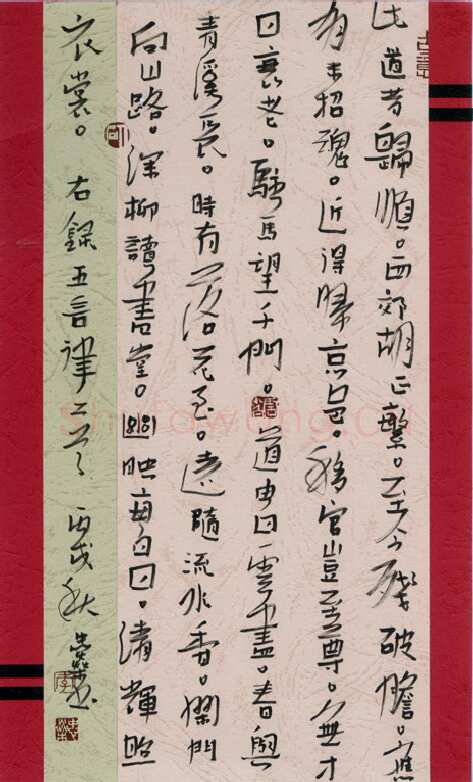 此道昔歸順。西郊胡正繁。至今殘破膽。應
有未招魂。近得歸京邑。移官豈至尊。無才
日衰老。駐馬望千門。道由白雲盡。春與
青溪長。時有落花至。遠隨流水香。閑門
向山路。深柳讀書堂。幽映每白日。清輝照
衣裳。右錄五言律二首 丙戌秋